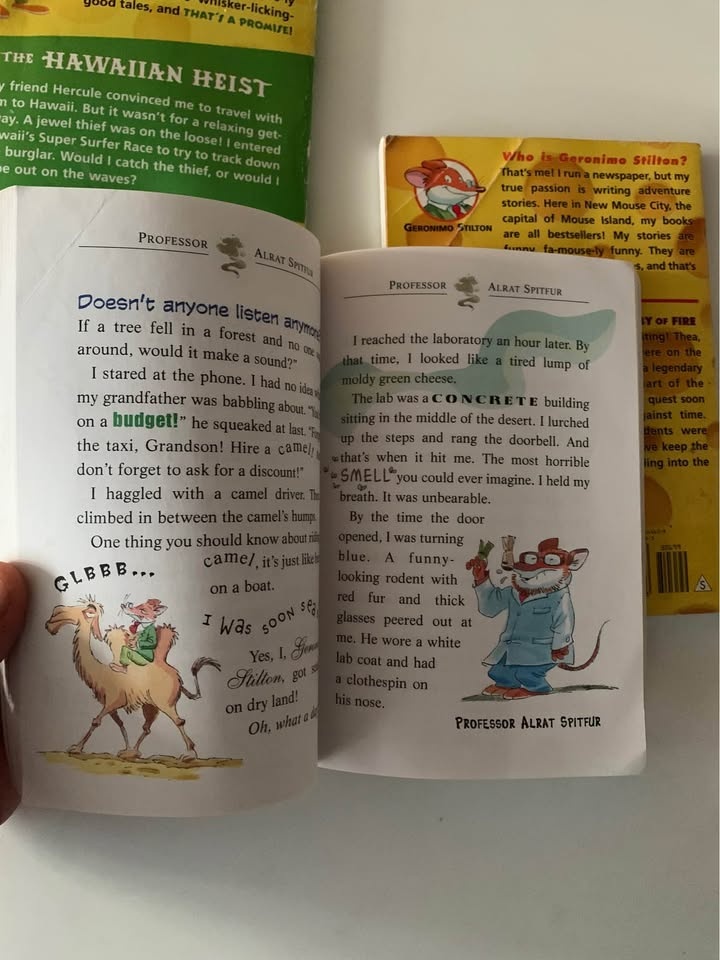 whisker-licking-
good tales, and THAT'S A PROMISE!
THE HAWAIIAN HEIST
y friend Hercule convinced me to travel with
to Hawaii. But it wasn't for a relaxing get-
A jewel thief was on the loose! I entered
Super Surfer Race to try to track down
burglar. Would I catch the thief, or would I
out on the waves?
Who is Geronimo Stilton?
That's me! I run a newspaper, but my
true passion is writing adventure
stories. Here in New Mouse City, the
capital of Mouse Island, my books
are all bestsellers! My stories are
funny, fa-mouse-ly funny. They are
s, and that's
GERONIMO STILTON
OF FIRE
Thea,
on the
a legendary
art of the
quest soon
time.
were
keep the
into the
PROFESSOR ALRAT SPITFUR
Doesn't anyone listen anymore
If a tree fell in a forest and no one
around, would it make a sound?"
I stared at the phone. I had no idea
my grandfather was babbling about.
on a budget!" he squeaked at last.
the taxi, Grandson! Hire a camel!
don't forget to ask for a discount!"
I haggled with a camel driver.
climbed in between the camel's humps.
One thing you should know about
camel, it's just like
on a boat.
GLBBB...
I was soon
Yes, I,
Stilton, got
on dry land!
Oh, what a
PROFESSOR ALRAT SPITFUR
I reached the laboratory an hour later. By
that time, I looked like a tired lump of
moldy green cheese.
The lab was a CONCRETE building
sitting in the middle of the desert. I lurched
up the steps and rang the doorbell. And
that's when it hit me. The most horrible
SMELL you could ever imagine. I held my
breath. It was unbearable.
By the time the door
opened, I was turning
blue. A funny-
looking rodent with
red fur and thick
glasses peered out at
me. He wore a white
lab coat and had
a clothespin on
his nose.
PROFESSOR ALRAT SPITFUR